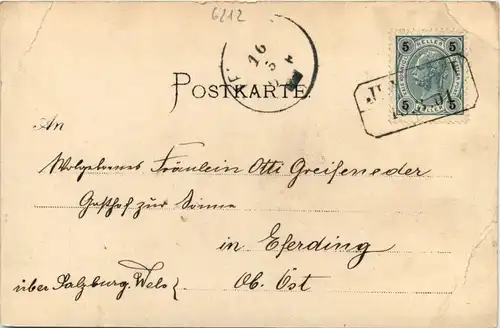 6212
16
3
5 HELLER 5
POSTKARTE.
5 HELLER 5
An
Wolgeborenes Fräulein Otti Greifeneder
Gasthof zur Sonne
in Eferding
über Salzburg. Wels{ Ob. Öst